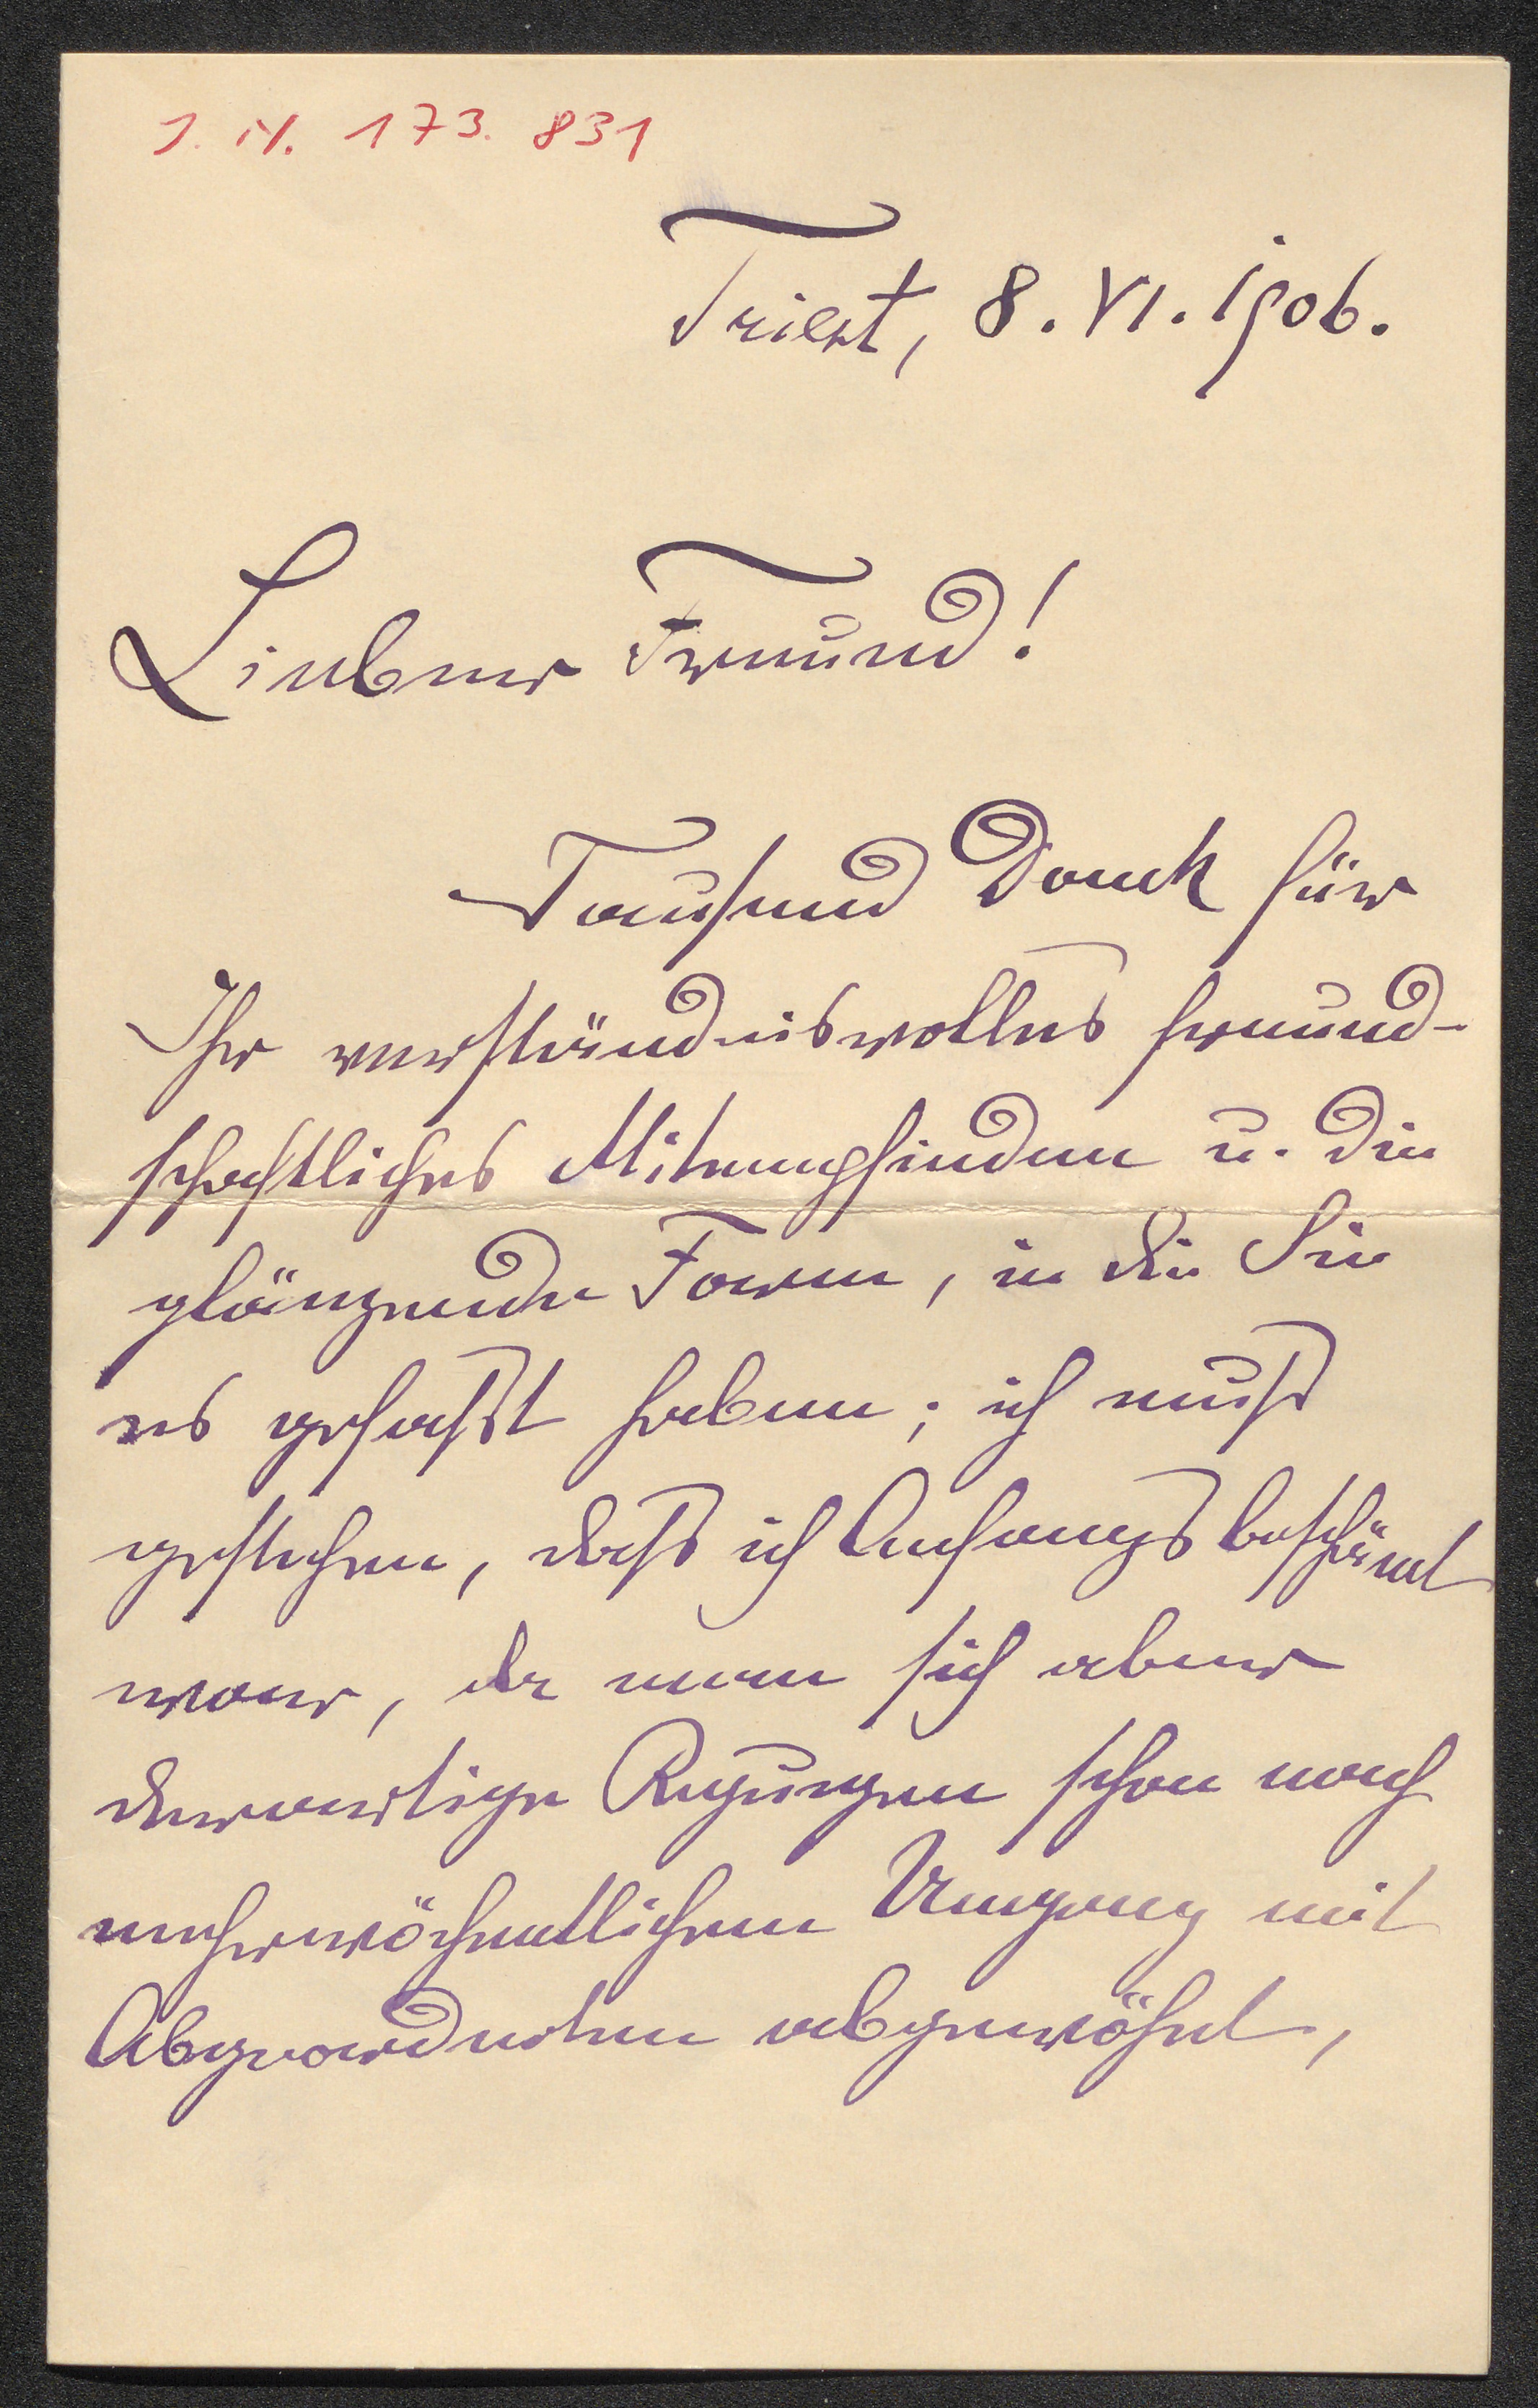 I. N. 173.831
Triest, 8. VI. 1906.
Lieber Freund!
Tausend Dank für
Ihr verständnisvolles freund-
schaftliches Mitempfinden u. die
glänzende Form, in die Sie
es gefasst haben; ich muß
gestehen, daß ich Anfangs beschämt
war, da man sich aber
derartige Regungen schon nach
mehrwöchentlichem Umgang mit
Abgeordneten abgewöhnt,